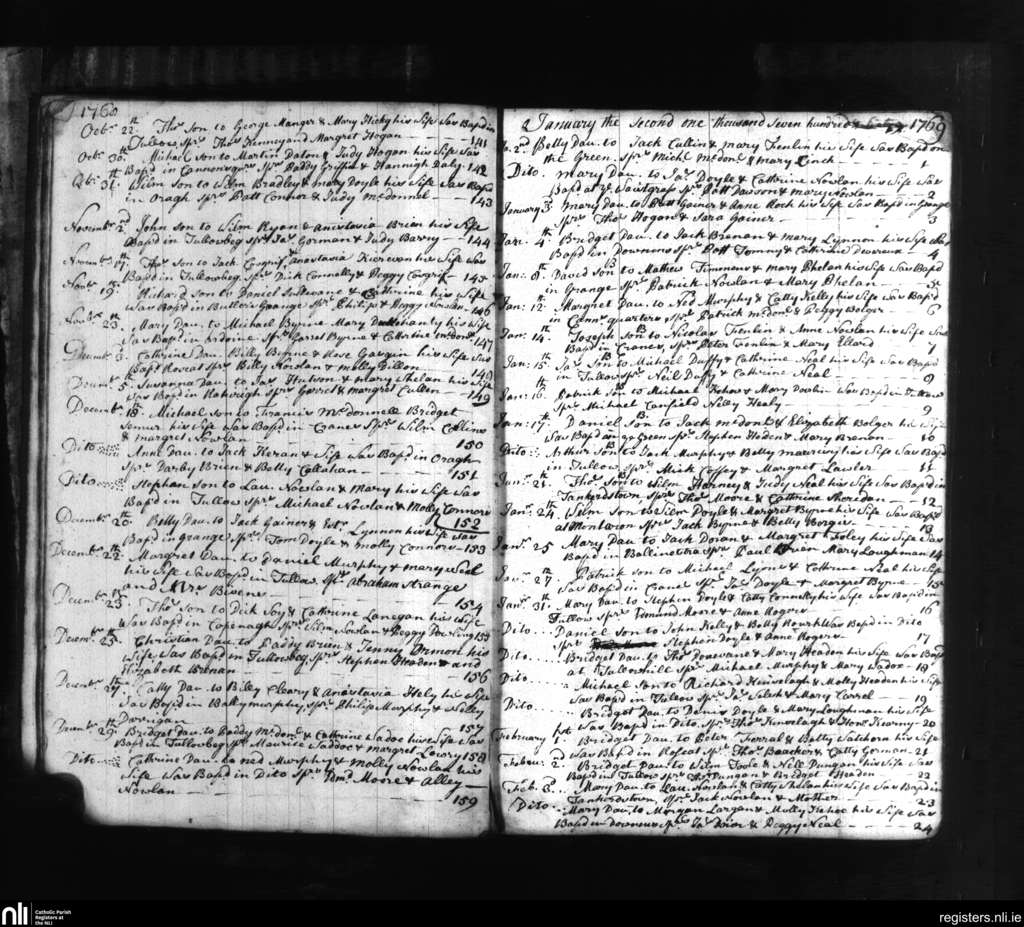 1768
Octbr 22th Thos Son to George Manger & Mary Hicky his Wife Was Bapd in
Tullow, Sprs Thos Kenny and Margret Hogan 141
Octbr 30th Michael Son to Martin Daton & Judy Hogan his Wife Was
Bapd in Sprs Paddy Griffin & Hannigh Daly 142
Octbr 31th Wilm Son to Wilm Bradley & Mary Doyle his Wife Was Bapd
in Oragh Sprs Patt Connor & Judy McDonnel 143
Novembr 2d John Son to Wilm Ryan & Anastavia Brien his Wife
Bapd in Tullowbeg Sprs Jas Gorman & Judy Barry 144
Novembr 17th Thos Son to Jack Cosgrif Anastavia Kierevan his Wife Was
Bapd in Tullowbeg Sprs Dick Connelly & Peggy Cosgrif 145
Novbr 19th Richard Son to Daniel Sullevane & Catherine his Wife
Was Bapd in Butlers Grange Sprs Philip & Peggy Nowlan 146
Novbr 23th Mary Dau. to Michael Byrne Mary his Wife
Was Bapd in Ardoine Sprs Garret Byrne & Cathrine McDonnel 147
Decembr 3 Cathrine Dau. Billy Byrne & Rose Gavguin his Wife Was
Bapd Roscat Sprs Billy Nowlan & Molley Dillon 148
Decembr 5th Susanna Dau. to Jas Hutson & Mary Phelan his Wife
Was Bapd in Rathveigh Sprs Garret & Margret Cullen 149
Decembr 18 Michael Son to Francis McDonnell Bridget
his Wife Was Bapd in Cranes Sprs Wilm Collins
& Margret Nowlan 150
Dito Anne Dau. to Jack Keran & Wife Was Bapd in Oragh
Sprs Darby Brien & Betty Callahan 151
Dito Stephen Son to Lau. Nowlan & Mary his Wife Was
Bapd in Tullow Sprs Michael Nowlan & Molly Connors
152
Decembr 20th Betty Dau. to Jack Gainer & Lynnon his Wife Was
Bapd in Grange Sprs Tom Doyle & Molly Connors 153
Decembr 22th Margret Dau to Daniel Murphy & Mary Neal
his Wife Was Bapd in Tullow, Sprs Abraham Strange
and Mrs 154
Decembr 23th Thos Son to Dick Foy & Cathrine Lanegan his Wife
Was Bapd in Copenagh Sprs Wilm Nowlan & Peggy Dowling 155
Decembr 25th Christian Dau. to Paddy Brien & Jenny Ormon his
Wife Was Bapd in Tullowbeg Sprs Stephen Headen and
Elizabeth Brenan 156
Decembr 27th Catty Dau. to Billey Cleary & Anastavia Hely his Wife
Was Bapd in Ballymurphy, Sprs Philip Murphy & Nelley
Dorrigan 157
Decembr 29th Bridget Dau. to Paddy McDonl & Cathrine Vadoc his Wife Was
Bapd in Tullowbeg Sprs Maurice Vaddoc & Margret Lowry 158
Dito Cathrine Dau. to Ned Murphy & Molly Nowlan his
Wife Was Bapd in Dito Sprs Edmd Moore & Alley
Nowlan 159
January the Second one thousand Seven hundred 1769
2nd Betty Dau. to Jack Cullin & Mary Tenlin his Wife Was Bapd on
the Green. Sprs Michl McDonl & Mary Linch 1
Dito. Mary Dau. to Jas Doyle & Cathrine Nowlan his Wife Was
Bapd at Sprs Patt Dawson & Mary Nowlan 2
January 3d Mary Dau. to Patt Gainer & Anne Roch his Wife Was Bapd in Grange
Sprs Thos Hogan & Sara Gainer 3
Jan. 4th Bridget Dau. to Jack Brenan & Mary Lynnon his Wife Was
Bapd in Downens Sprs Patt Tommy & Cathrine Devereux 4
Jan: 8th David Son to Mathew Timmens & Mary Phelan his Wife Was Bapd
in Grange Sprs Patrick Nowlan & Mary Phelan 5
Jan. 12th Margret Dau. to Ned Murphy & Catty Kelly his Wife Was Bapd
in Connrs quarters Sprs Patrick McDonl & Peggy Bolger 6
Jan. 14th Joseph Son to Nicolas Tenlin & Anne Nowlan his Wife Was
Bapd in Cranes Sprs Peter Tenlin & Mary Ellard 7
Jan: 15. Jas Son to Michael Duffy & Cathrine Neal his Wife Was Bapd
in Tullow Sprs Neil Duffy & Cathrine Neal 8
Jan: 16th Patrick Son to Michael Kehoe & Mary Doolin Was Bapd in Tullow
Sprs Michael Canfield Nelly Healy 9
Jan: 17th Daniel Son to Jack McDonl & Elizabeth Bolger his Wife
Was Bapd on ye Green Sprs Stephen Heden & Mary Brenan 10
Dito: Arthur Son to Jack Murphy & Betty his Wife Was Bapd
in Tullow Sprs Mick Coffey & Margret Lawler 11
Jan. 21th Thos Son to Wilm Harney & Judy Neal his Wife Was Bapd in
Tankerdstown, Sprs Thos Moore & Cathrine Sheredan 12
Jan. 24th Wilm Son to Wilm Doyle & Margret Byrne his Wife Was Bapd
at Sprs Jack Byrne & Betty 13
Jan. 25 Mary Dau. to Jack Doran & Margret Foley his Wife Was
Bapd in Ballinotra Sprs Paul Brien Mary Loughman 14
Jan. 27th Patrick Son to Michael Lyons & Cathrine Neal his Wife
Was Bapd in Cranes Sprs Jas Doyle & Margret Byrne 15
Jan. 31th Mary Dau. to Stephen Doyle & Catty Connelly his Wife Was Bapd in
Tullow Sprs Edmund Moore & Anne Rogers 16
Dito Daniel Son to John Kelly & Betty Was Bapd in Dito
Sprs Stephen Doyle & Anne Rogers 17
Dito Bridget Dau. to Thos Donevane & Mary Headen his Wife Was Bapd
at Tulowhill Sprs Michael Murphy & Mary Vadox 18
Dito Michael Son to Richard Hinvelagh & Molley Headen his Wife
Was Bapd in Tullow Sprs Jas Welsh & Mary Correl 19
Dito Bridget Dau. to Denis Doyle & Mary Loughman his Wife
Was Bapd in Dito, Sprs Thos Kinvelagh & Honr Kearny 20
February 1st Bridget Dau. to Peter Farral & Betty his Wife
Was Bapd in Roscat Sprs Thos Baacher & Catty Gorman 21
Febur: 2d Bridget Dau. to Wilm Toole & Nell Dungan his Wife Was
Bapd in Tullow Sprs Dungan & Bridget Headen 22
Feb. 2d Mary Dau. to Lau. Nowlan & Catty Phelan his Wife Was Bapd in
Tankerdstown, Sprs Jack Nowlan & Mother 23
Dito. Mary Dau. to Morgan Largan & Molly his Wife Was
Bapd in Downens Sprs Jas Brien & Peggy Neal 24
nli
Catholic Parish
Registers at
the NLI
registers.nli.ie